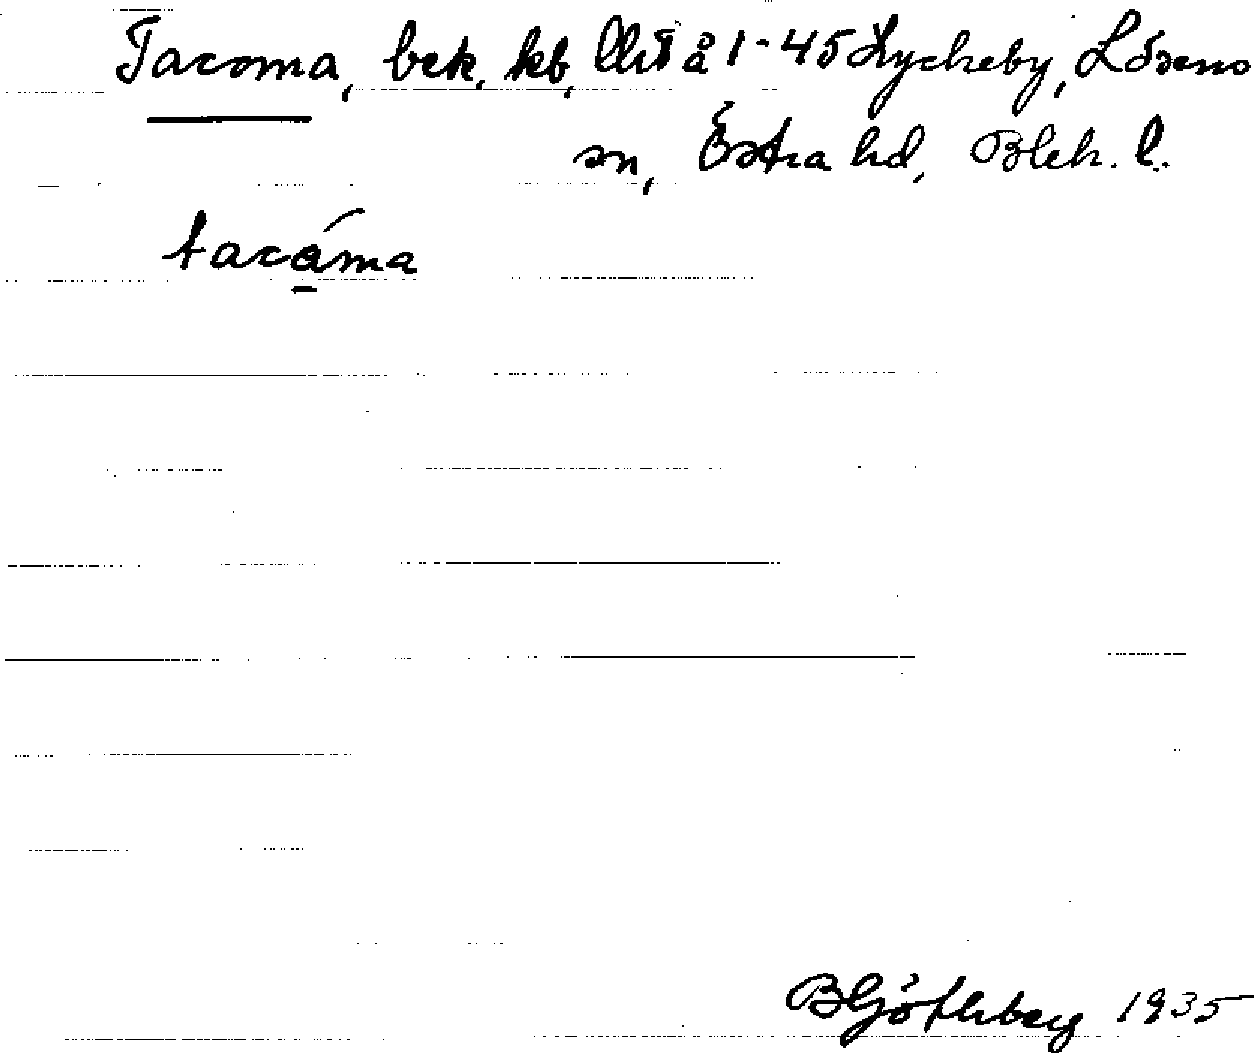 Tacoma, bek, kb, å 1-45 Lyckeby, Lösens
sn, Östra hd, Blek. l.
tacåma
BGöthberg 1935